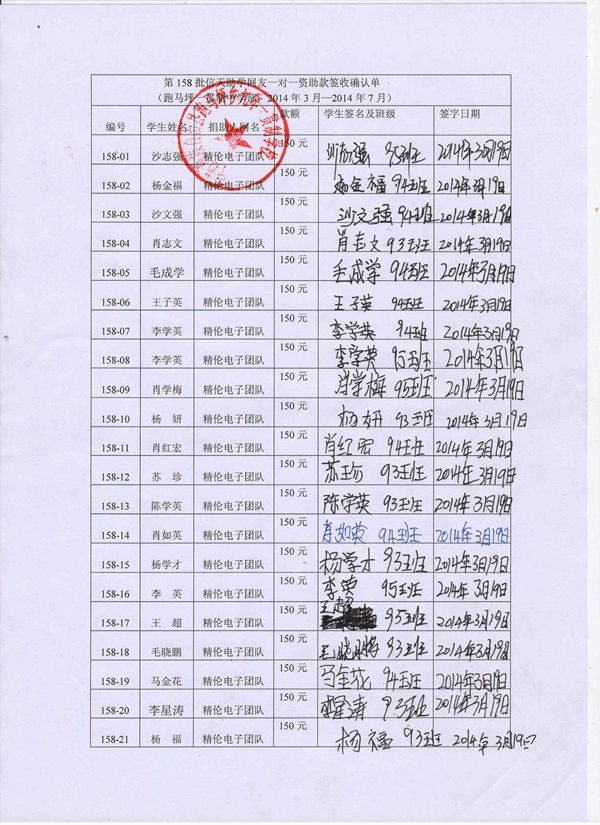 第 158 批信天助学网友一对一资助款签收确认单
（跑马坪 2014 年 3 月—2014 年 7 月）
编号 学生姓名 捐助人网名 款额 学生签名及班级 签字日期
158-01 沙志强 精伦电子团队 150 元 沙志强 95班 2014年3月19日
158-02 杨金福 精伦电子团队 150 元 杨金福 94班 2014年3月19日
158-03 沙文强 精伦电子团队 150 元 沙文强 94班 2014年3月19日
158-04 肖志文 精伦电子团队 150 元 肖志文 93班 2014年3月19日
158-05 毛成学 精伦电子团队 150 元 毛成学 94班 2014年3月19日
158-06 王子英 精伦电子团队 150 元 王子英 94班 2014年3月19日
158-07 李学英 精伦电子团队 150 元 李学英 94班 2014年3月19日
158-08 李学英 精伦电子团队 150 元 李学英 95班 2014年3月19日
158-09 肖学梅 精伦电子团队 150 元 肖学梅 95班 2014年3月19日
158-10 杨 妍 精伦电子团队 150 元 杨妍 93班 2014年3月19日
158-11 肖红宏 精伦电子团队 150 元 肖红宏 94班 2014年3月19日
158-12 苏 珍 精伦电子团队 150 元 苏珍 93班 2014年3月19日
158-13 陈学英 精伦电子团队 150 元 陈学英 93班 2014年3月19日
158-14 肖如英 精伦电子团队 150 元 肖如英 94班 2014年3月19日
158-15 杨学才 精伦电子团队 150 元 杨学才 93班 2014年3月19日
158-16 李 英 精伦电子团队 150 元 李英 95班 2014年3月19日
158-17 王 超 精伦电子团队 150 元 王超 95班 2014年3月19日
158-18 毛晓鹏 精伦电子团队 150 元 毛晓鹏 93班 2014年3月19日
158-19 马金花 精伦电子团队 150 元 马金花 94班 2014年3月19日
158-20 李星涛 精伦电子团队 150 元 李星涛 93班 2014年3月19日
158-21 杨 福 精伦电子团队 150 元 杨福 93班 2014年3月19日